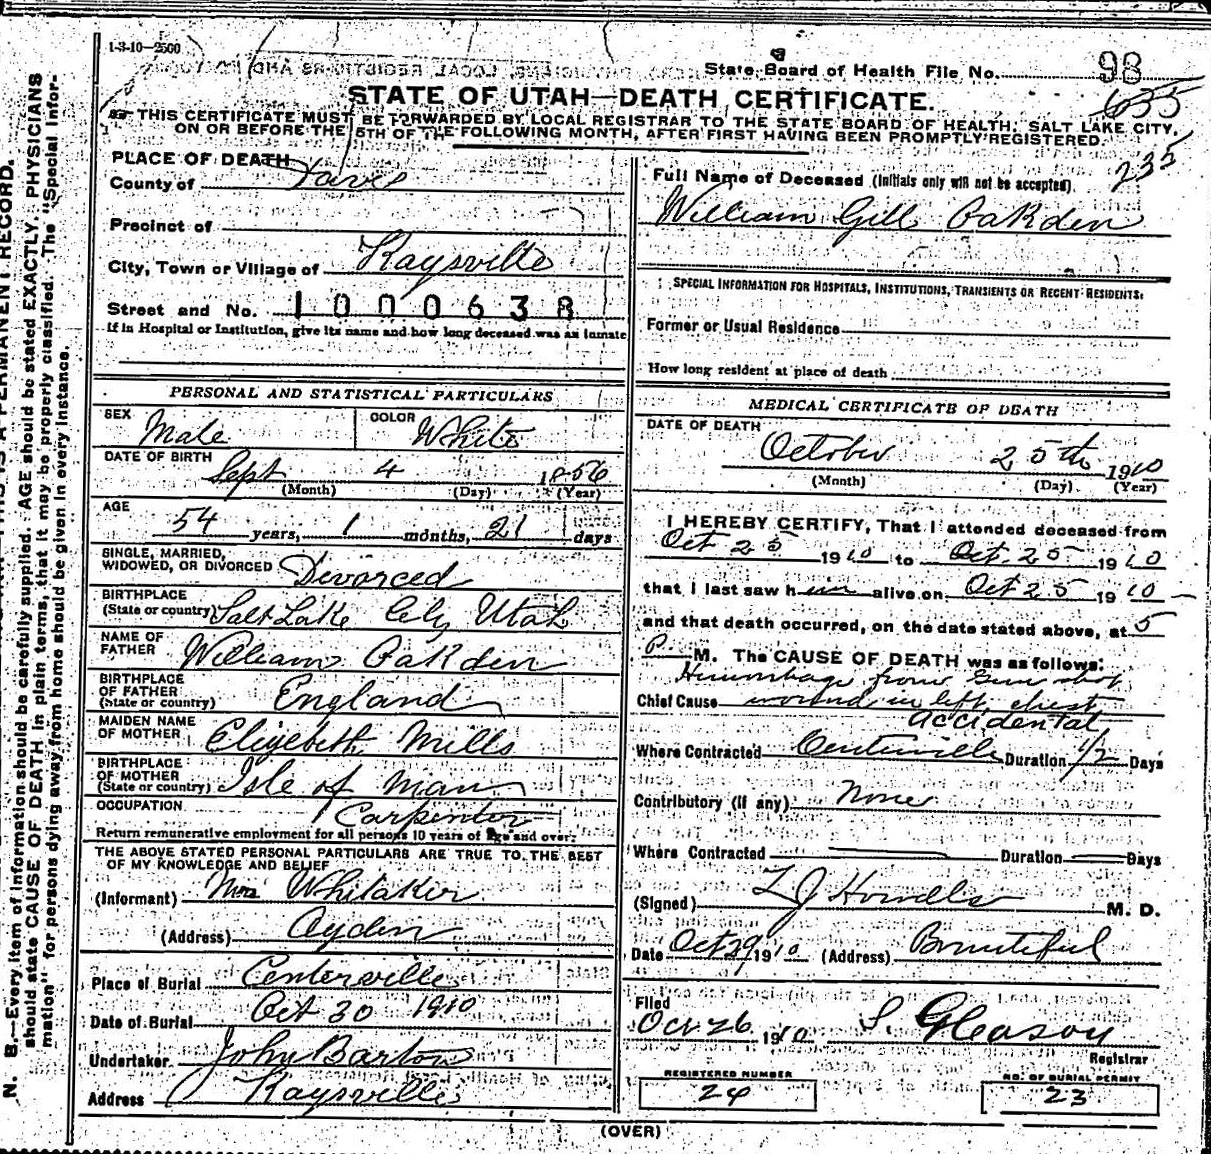 1-3-10-2500
State Board of Health File No. 98
635
STATE OF UTAH—DEATH CERTIFICATE.
THIS CERTIFICATE MUST BE FORWARDED BY LOCAL REGISTRAR TO THE STATE BOARD OF HEALTH, SALT LAKE CITY,
ON OR BEFORE THE 5TH OF THE FOLLOWING MONTH, AFTER FIRST HAVING BEEN PROMPTLY REGISTERED.
235
PLACE OF DEATH
County of Davis
Precinct of
City, Town or Village of Kaysville
Street and No. 1000638
If in Hospital or Institution, give its name and how long deceased was an inmate
PERSONAL AND STATISTICAL PARTICULARS
SEX Male COLOR White
DATE OF BIRTH Sept 4 1856
(Month) (Day) (Year)
AGE
54 years, 1 months, 21 days
SINGLE, MARRIED,
WIDOWED, OR DIVORCED Divorced
BIRTHPLACE
(State or country) Salt Lake City Utah
NAME OF
FATHER William Oakden
BIRTHPLACE
OF FATHER
(State or country) England
MAIDEN NAME
OF MOTHER Elizebeth Mills
BIRTHPLACE
OF MOTHER
(State or country) Isle of Man
OCCUPATION Carpenter
Return remunerative employment for all persons 10 years of age and over.
THE ABOVE STATED PERSONAL PARTICULARS ARE TRUE TO THE BEST
OF MY KNOWLEDGE AND BELIEF
(Informant) Mrs Whitaker
(Address) Ogden
Place of Burial Centerville
Date of Burial Oct 30 1910
Undertaker John Barton
Address Kaysville
Full Name of Deceased (Initials only will not be accepted)
William Gill Oakden
SPECIAL INFORMATION FOR HOSPITALS, INSTITUTIONS, TRANSIENTS OR RECENT RESIDENTS:
Former or Usual Residence
How long resident at place of death
MEDICAL CERTIFICATE OF DEATH
DATE OF DEATH
October 25th 1910
(Month) (Day) (Year)
I HEREBY CERTIFY, That I attended deceased from
Oct 25 1910 to Oct. 25 1910
that I last saw him alive on Oct 25 1910
and that death occurred, on the date stated above, at 5
P. M. The CAUSE OF DEATH was as follows:
Hemorrhage from Gun shot
Chief Cause wound in left chest
accidental
Where Contracted Centerville Duration 1/2 Days
Contributory (if any) None
Where Contracted Duration Days
(Signed) Howells M. D.
Date Oct 29 1910 (Address) Bountiful
Filed
Oct 26 1910 S. Gleason
Registrar
REGISTERED NUMBER
24
NO. OF BURIAL PERMIT
23
(OVER)
N. B.—Every item of information should be carefully supplied. AGE should be stated EXACTLY. PHYSICIANS
should state CAUSE OF DEATH in plain terms, that it may be properly classified. The "Special Infor-
mation" for persons dying away from home should be given in every instance.
A PERMANENT RECORD.